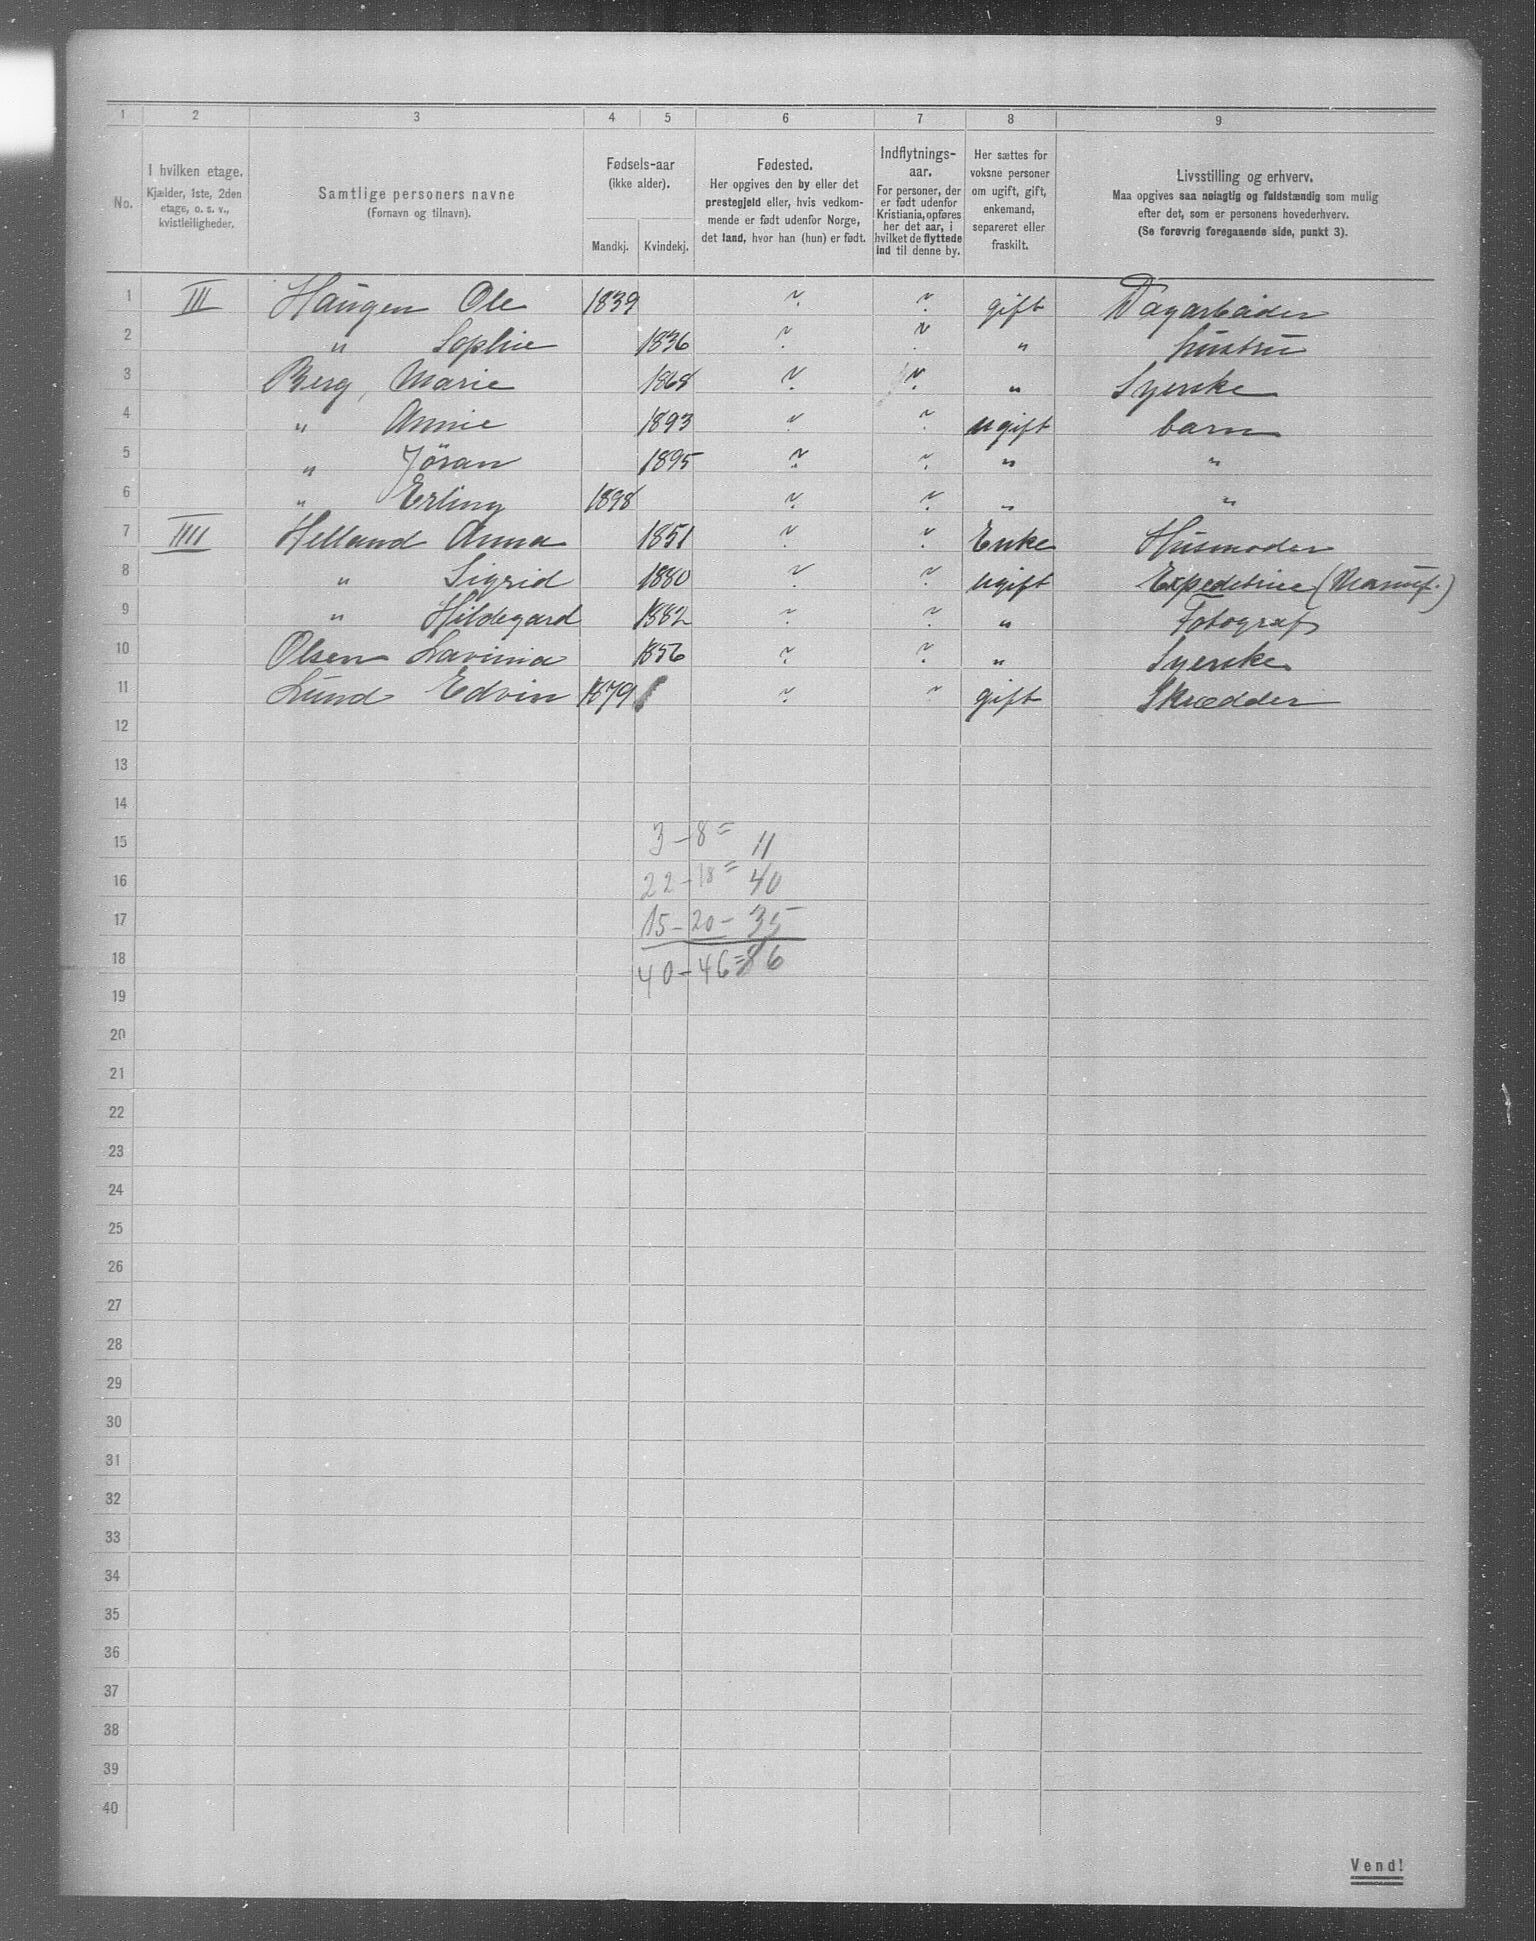 1 2 3 4 5 6 7 8 9
No.
I hvilken etage.
Kjælder, 1ste, 2den
etage, o. s. v.,
kvistleiligheder.
Samtlige personers navne
(Fornavn og tilnavn).
Fødsels-aar
(ikke alder).
Mandkj. Kvindekj.
Fødested.
Her opgives den by eller det
prestegjeld eller, hvis vedkom-
mende er født udenfor Norge,
det land, hvor han (hun) er født.
Indflytnings-
aar.
For personer, der
er født udenfor
Kristiania, opføres
her det aar, i
hvilket de flyttede
ind til denne by.
Her sættes for
voksne personer
om ugift, gift,
enkemand,
separeret eller
fraskilt.
Livsstilling og erhverv.
Maa opgives saa nøiagtig og fuldstændig som mulig
efter det, som er personens hovederhverv.
(Se forøvrig foregaaende side, punkt 3).
1 III Haugen Ole 1839 ? ? gift Dagarbeider
2 " Sophie 1836 ? ? " hustru
3 Berg, Marie 1868 ? ? " Syerske
4 " Annie 1893 ? ? ugift barn
5 " Jöran 1895 ? ? " "
6 " Erling 1898 ? ? " "
7 IIII Helland Anna 1851 ? ? Enke Husmoder
8 " Sigrid 1880 ? ? ugift Expeditrice (Manuf.)
9 " Hildegard 1882 ? ? " Fotograf
10 Olsen Lavinia 1856 ? ? " Syerske
11 Lund Edvin 1879 ? ? gift Skrædder
12
13
14
15 3 - 8 = 11
16 22 - 18 = 40
17 15 - 20 - 35
18 40 - 46 = 86
19
20
21
22
23
24
25
26
27
28
29
30
31
32
33
34
35
36
37
38
39
40
Vend!